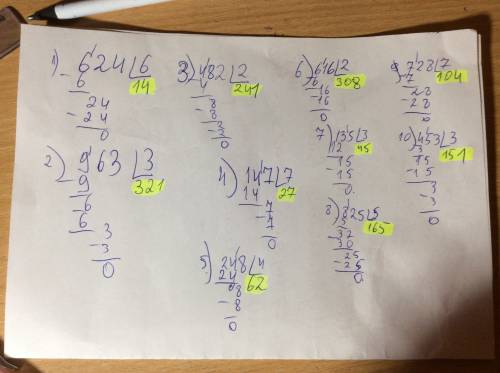 1) 624 6
- 6 14
24
- 24
0
2) 963 3
- 9 321
6
- 6
3
- 3
0
3) 482 2
- 4 241
8
- 8
- 3
0
4) 147 7
14 27
- 7
7
0
5) 248 4
24 62
08
- 8
0
6) 616 2
6 308
- 16
- 16
0
7) 135 3
12 45
15
- 15
0
8) 825 5
5 165
- 32
30
25
- 25
0
728 7
- 7 104
28
- 28
0
10) 453 3
3 151
15
- 15
3
- 3
0